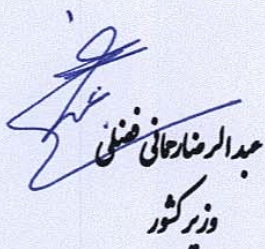 عبدالرضا رحمانی فضلی
وزیر کشور